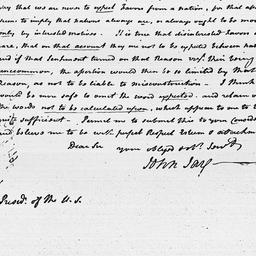 that we are never to expect favors from a nation, for that
seem to imply that nations always are, or always ought to be mov
only by interested motives. It is true that disinterested Favors a
rare, that on that account they are not to be expected between nat
and if that Sentiment turned on that Reason viz. their being
uncommon, the assertion would then be so limited by that
Reason, as not to be liable to misconstruction. I think
would be more safe to omit the word expected and retain
the words not to be calculated upon, which appear to me to
quite sufficient. Permit me to submit this to your Consid
and believe me to be with perfect Respect Esteem & attachm
Dear Sir your obliged & obt. Servt.
John Jay
Presidt. of the U.S.